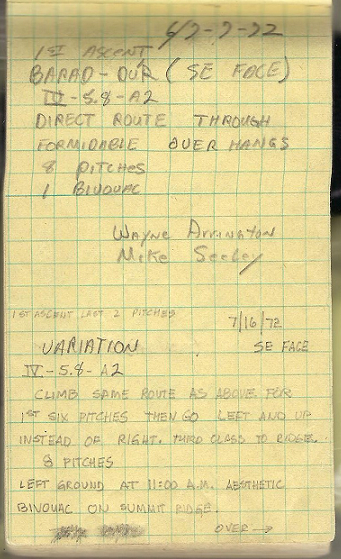 6/2-7-72
1ST ASCENT
BARAD-DUR (SE FACE)
IV-5.8-A2
DIRECT ROUTE THROUGH
FORMIDABLE OVER HANGS
8 PITCHES
1 BIVOUAC
Wayne Arrington
Mike Seeley
1ST ASCENT LAST 2 PITCHES
7/16/72
VARIATION SE FACE
IV-5.8-A2
CLIMB SAME ROUTE AS ABOVE FOR
1ST SIX PITCHES THEN GO LEFT AND UP
INSTEAD OF RIGHT. THIRD CLASS TO RIDGE.
8 PITCHES
LEFT GROUND AT 11:00 A.M. AESTHETIC
BIVOUAC ON SUMMIT RIDGE.
OVER→